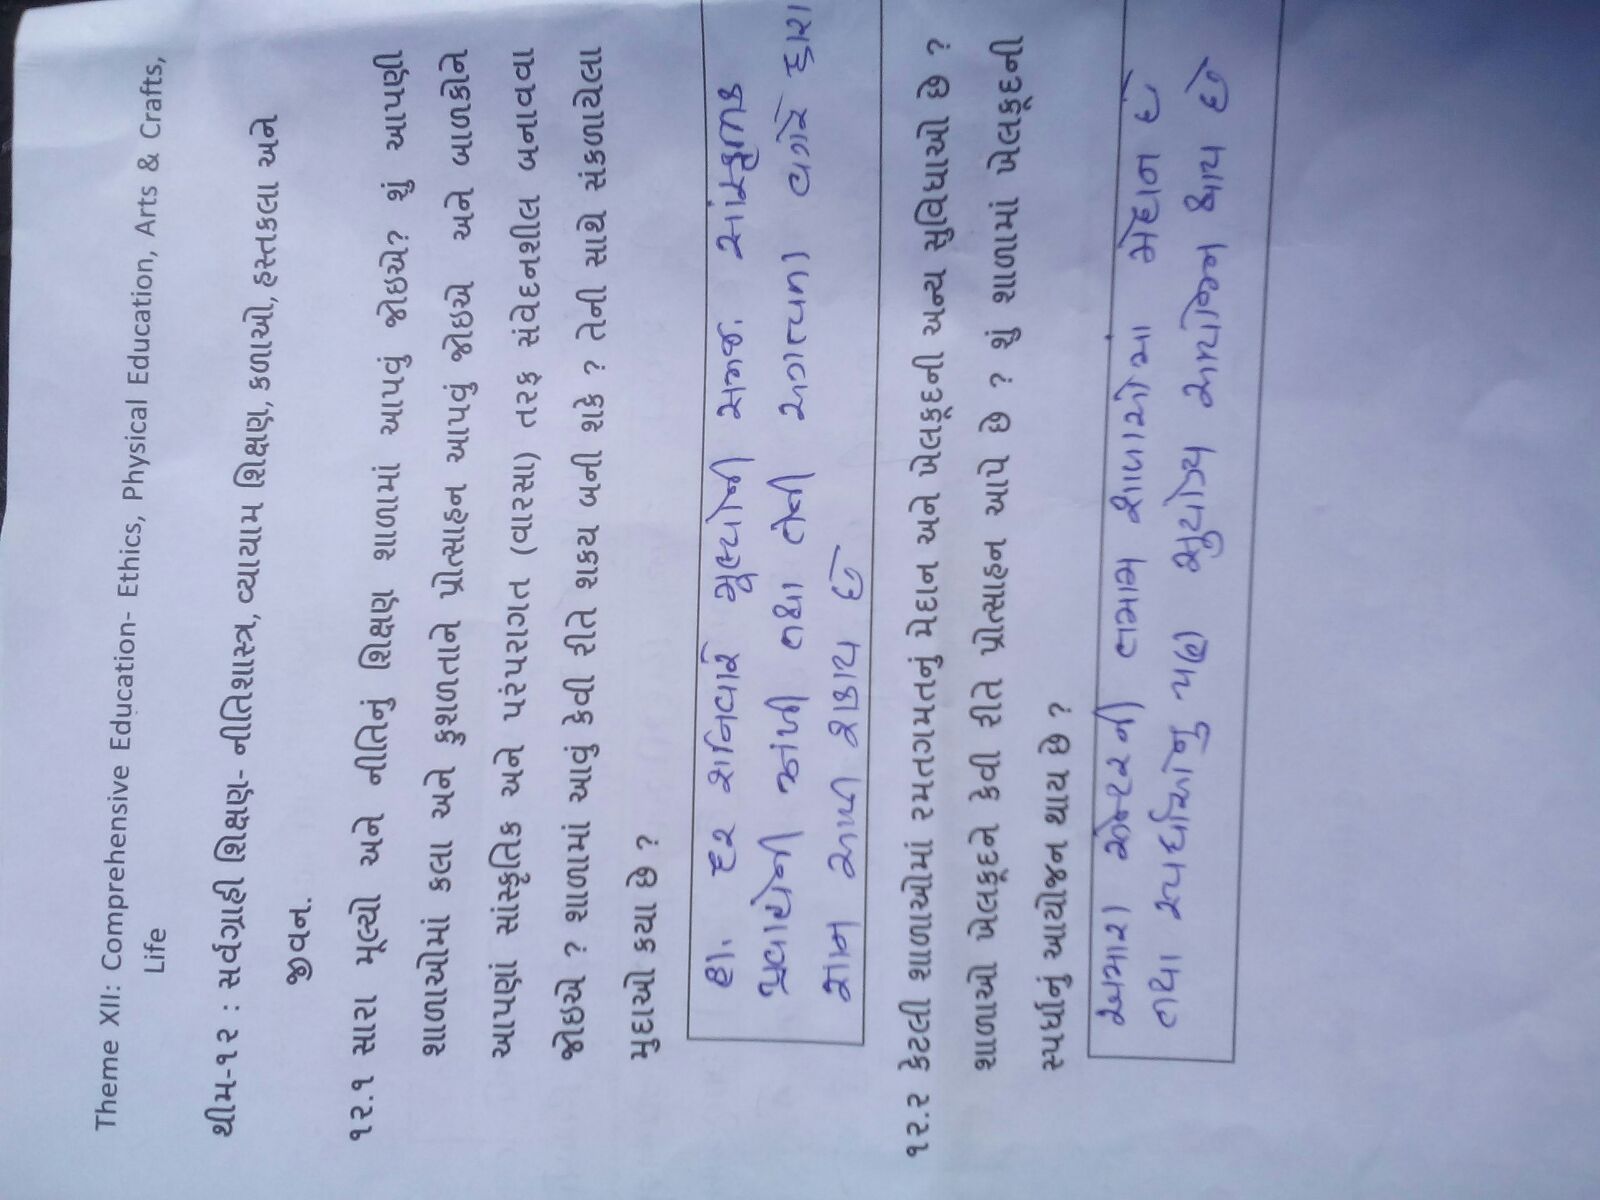 Theme XII: Comprehensive Education- Ethics, Physical Education, Arts & Crafts,
Life
થીમ-૧૨ : સર્વગ્રાહી શિક્ષણ- નીતિશાસ્ત્ર, વ્યાયામ શિક્ષણ, કળાઓ, હસ્તકલા અને
જીવન.
૧૨.૧ સારા મૂલ્યો અને નીતિનું શિક્ષણ શાળામાં આપવું જોઇએ? શું આપણી
શાળાઓમાં કલા અને કુશળતાને પ્રોત્સાહન આપવું જોઇએ અને બાળકોને
આપણાં સાંસ્કૃતિક અને પરંપરાગત (વારસા) તરફ સંવેદનશીલ બનાવવા
જોઇએ ? શાળામાં આવું કેવી રીતે શકય બની શકે ? તેની સાથે સંકળાયેલા
મુદાઓ કયા છે ?
હા. દર શનિવારે મુલ્યોની સમજ. સાંસ્કૃતિક
તથા તેની અગત્યતા વગેરે દ્વારા
જ્ઞાન આપી શકાય છે
૧૨.૨ કેટલી શાળાઓમાં રમતગમતનું મેદાન અને ખેલકૂદની અન્ય સુવિધાઓ છે ?
શાળાઓ ખેલકૂદને કેવી રીતે પ્રોત્સાહન આપે છે ? શું શાળામાં ખેલકૂદની
સ્પર્ધાનું આયોજન થાય છે ?
અમારા સેન્ટરની તમામ શાળાઓમાં મેદાન છે
તથા સ્પર્ધાઓનુ પણ સુયોગ્ય આયોજન થાય છે